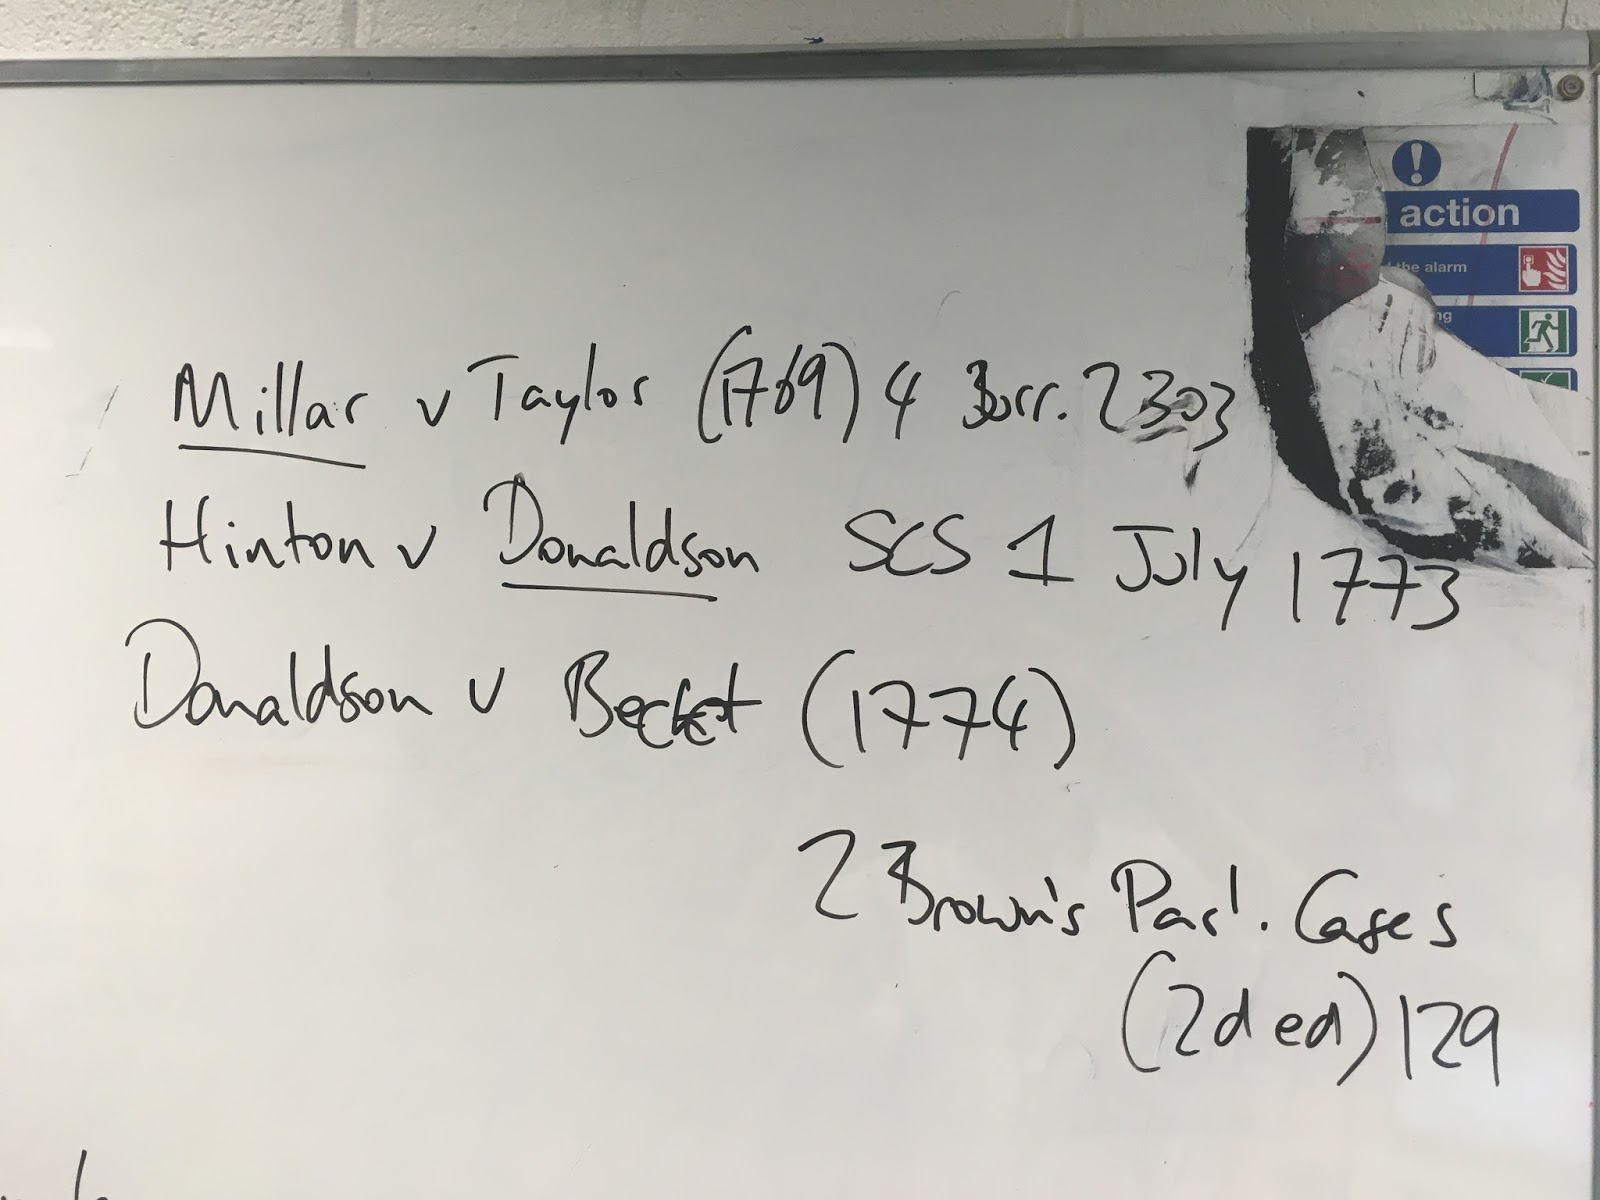 action
the alarm
Millar v Taylor (1769) 4 Burr. 2303
Hinton v Donaldson SCS 1 July 1773
Donaldson v Becket (1774)
2 Brown's Parl. Cases
(2d ed) 129